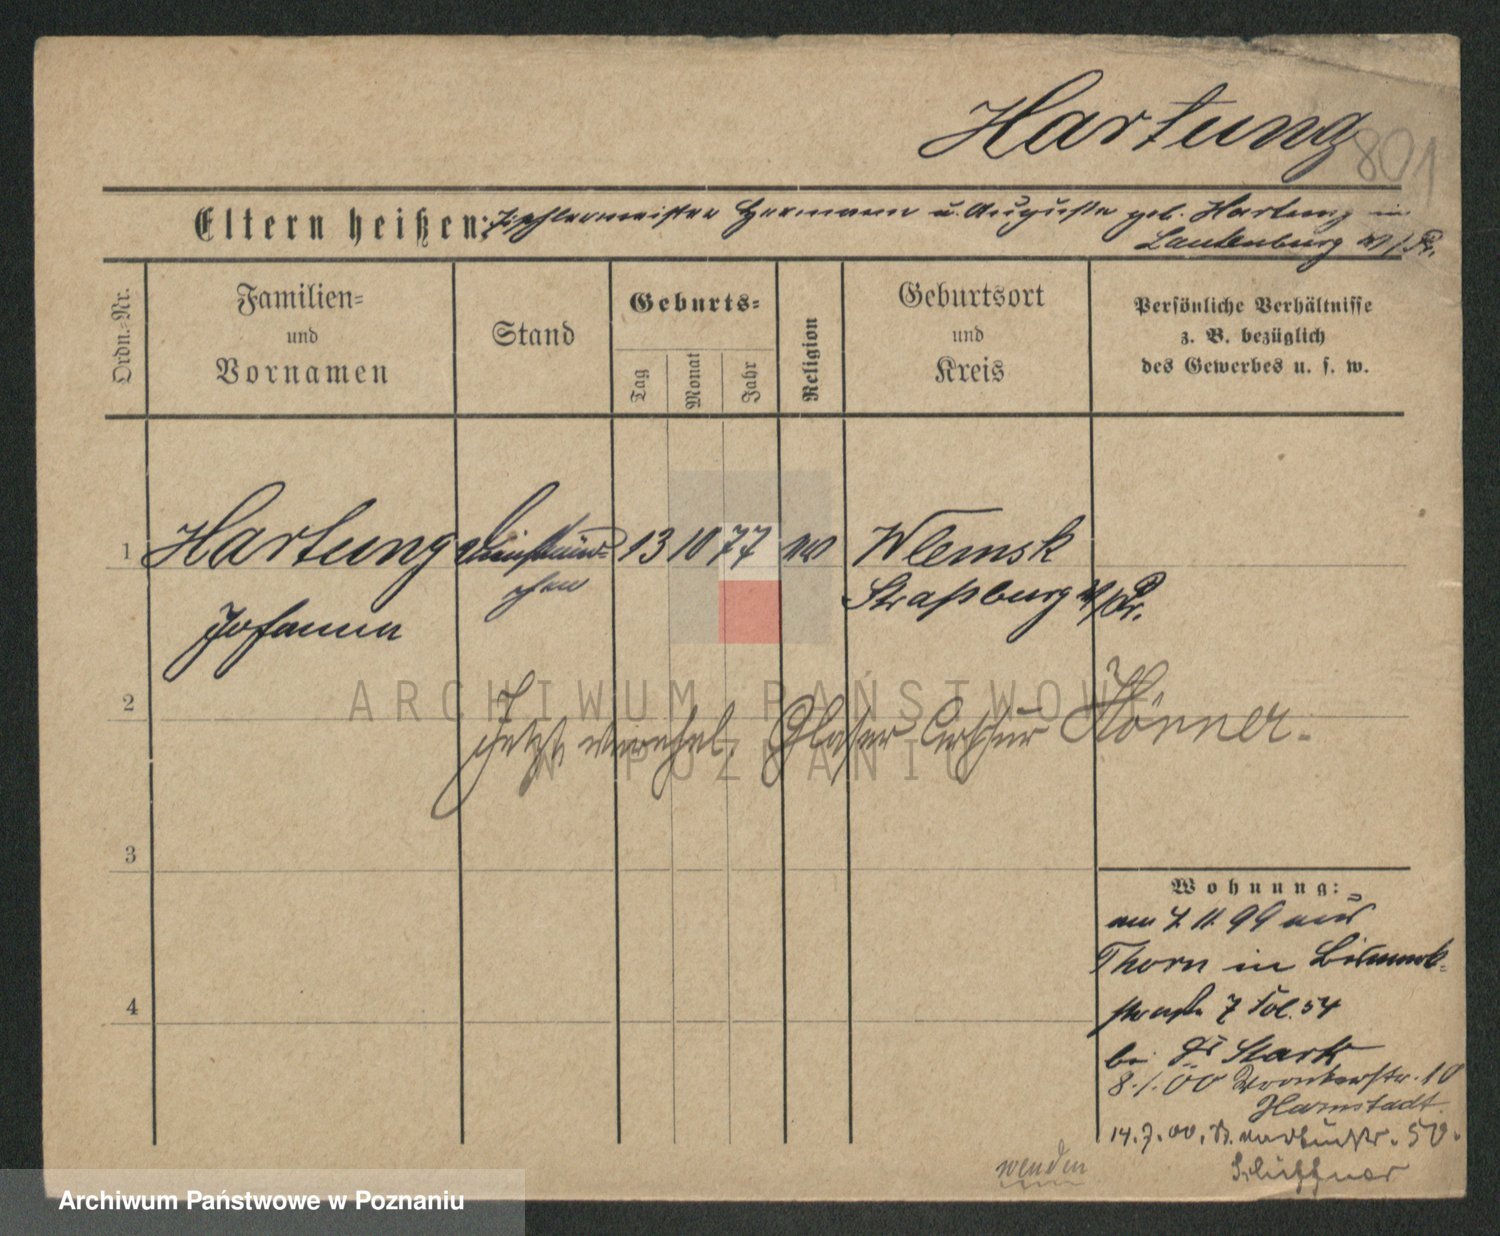 Hartung
801
Eltern heißen: Tischlermeister Hermann u. Auguste geb. Hartung in
Lautenburg W/Pr.
Ordn.-Nr.
Familien-
und
Vornamen
Stand
Geburts-
Tag
Monat
Jahr
Religion
Geburtsort
und
Kreis
Persönliche Verhältnisse
z. B. bezüglich
des Gewerbes u. s. w.
1 Hartung 13 10 77 ev Wlewsk
Johanna Straßburg W/Pr.
2
Jetzt verehel. Glaser Arthur Hönner.
3
Wohnung:
am 7. 11. 99 aus
Thorn in Bismark-
straße 7 Fol. 54
4
bei Stark
8. 1. 00 Wronkerstr. 10
Harnstadt
14. 7. 00. 50.
wenden
Archiwum Państwowe w Poznaniu
ARCHIWUM PAŃSTWOWE
W POZNANIU